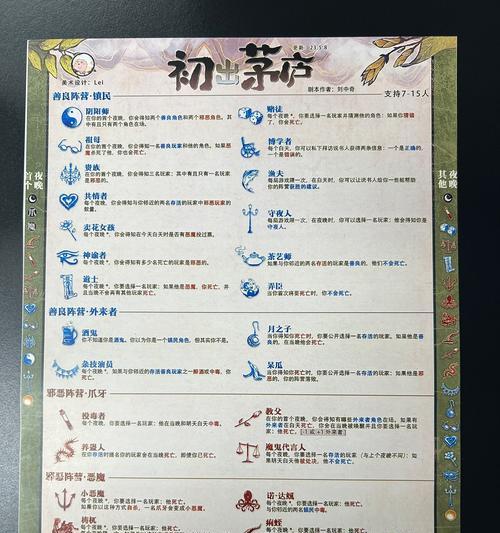 更新：23.5.8
初出茅庐
美术设计：Lei
剧本作者：刘中奇
支持7-15人
善良阵营·镇民
阴阳师
在你的首个夜晚，你会得知两个善良角色和两个邪恶角色，其中有且只有两个角色在场。
祖母
在你的首个夜晚，你会得知一名善良玩家和他的角色。如果恶魔杀死了他，你也会死亡。
贵族
在你的首个夜晚，你会得知三名玩家：其中有且只有一名玩家是邪恶的。
共情者
每个夜晚，你会得知与你邻近的两名存活的玩家中邪恶玩家的数量。
卖花女孩
每个夜晚*，你会得知在今天白天时是否有恶魔投过票。
神谕者
每个夜晚*，你会得知有多少名死亡的玩家是邪恶的。
道士
每个夜晚*，你要选择一名玩家：如果他是恶魔，你死亡，并且当晚不会再有其他玩家死亡。
赌徒
每个夜晚*，你要选择一名玩家并猜测他的角色：如果你猜错了，你会死亡。
博学者
每个白天，你可以私下拜访说书人获得两条信息：一个是正确的，一个是错误的。
渔夫
每局游戏限一次，在白天时，你可以让说书人给你一些能帮助你的阵营获胜的建议。
守夜人
每局游戏限一次，在夜晚时，你可以选择一名玩家：他会得知你是守夜人。
茶艺师
如果与你邻近的两名存活的玩家是善良的，他们不会死亡。
弄臣
当你首次将要死亡时，你不会死亡。
善良阵营·外来者
酒鬼
你不知道你是酒鬼。你以为你是一个镇民角色，但其实你不是。
杂技演员
每个夜晚*，如果与你邻近的存活善良玩家之一醉酒或中毒，你死亡。
月之子
当你得知你死亡时，你要公开选择一名存活的玩家。如果他是善良的，在当晚他会死亡。
呆瓜
当你得知你死亡时，你要公开选择一名存活的玩家：如果他是邪恶的，你的阵营落败。
邪恶阵营·爪牙
投毒者
每个夜晚，你要选择一名玩家：他在当晚和明天白天中毒。
养恩人
教父
在你的首个夜晚，你会得知有哪些外来者角色在场。如果有外来者在白天死亡，你会在当晚被唤醒并且你要选择一名玩家：他死亡。[-1或+1外来者]
魔鬼代言人
每个夜晚，你要选择一名存活的玩家（与上个夜晚不同）：如果明天白天他被处决，他不会死亡。
邪恶阵营·恶魔
小恶魔
每个夜晚*，你要选择一名玩家：他死亡。如果你以这种方式自杀，一名爪牙会变成小恶魔。
诺-达鲺
每个夜晚*，你要选择一名玩家：他死亡。与你邻近的两名镇民中毒。
首个夜晚
其他夜晚
爪
魔